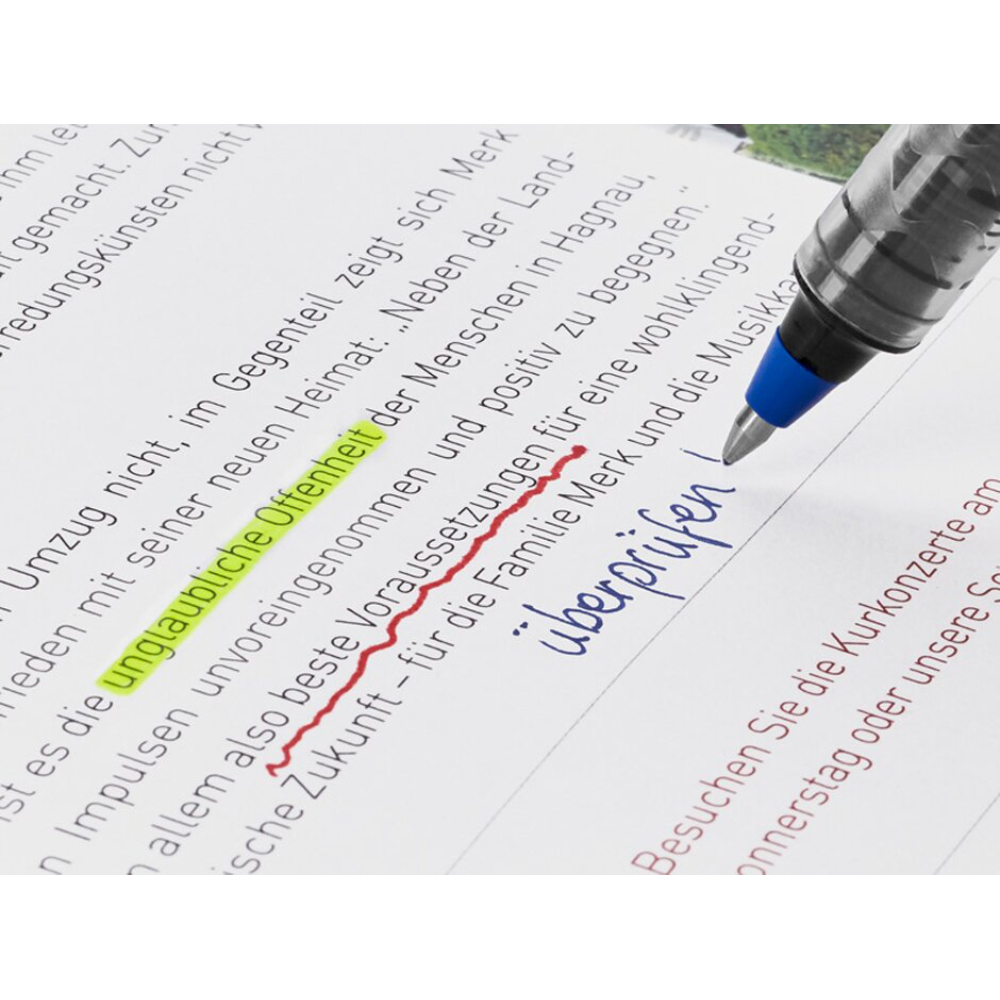 gemacht. Zur
redungskünsten nicht
Umzug nicht, im Gegenteil zeigt sich Merk
rieden mit seiner neuen Heimat: „Neben der Land-
ist es die unglaubliche Offenheit der Menschen in Hagnau,
n Impulsen unvoreingenommen und positiv zu begegnen.“
n allem also beste Voraussetzungen für eine wohlklingend-
ische Zukunft – für die Familie Merk und die Musikka
überprüfen
Besuchen Sie die Kurkonzerte am
onnerstag oder unsere